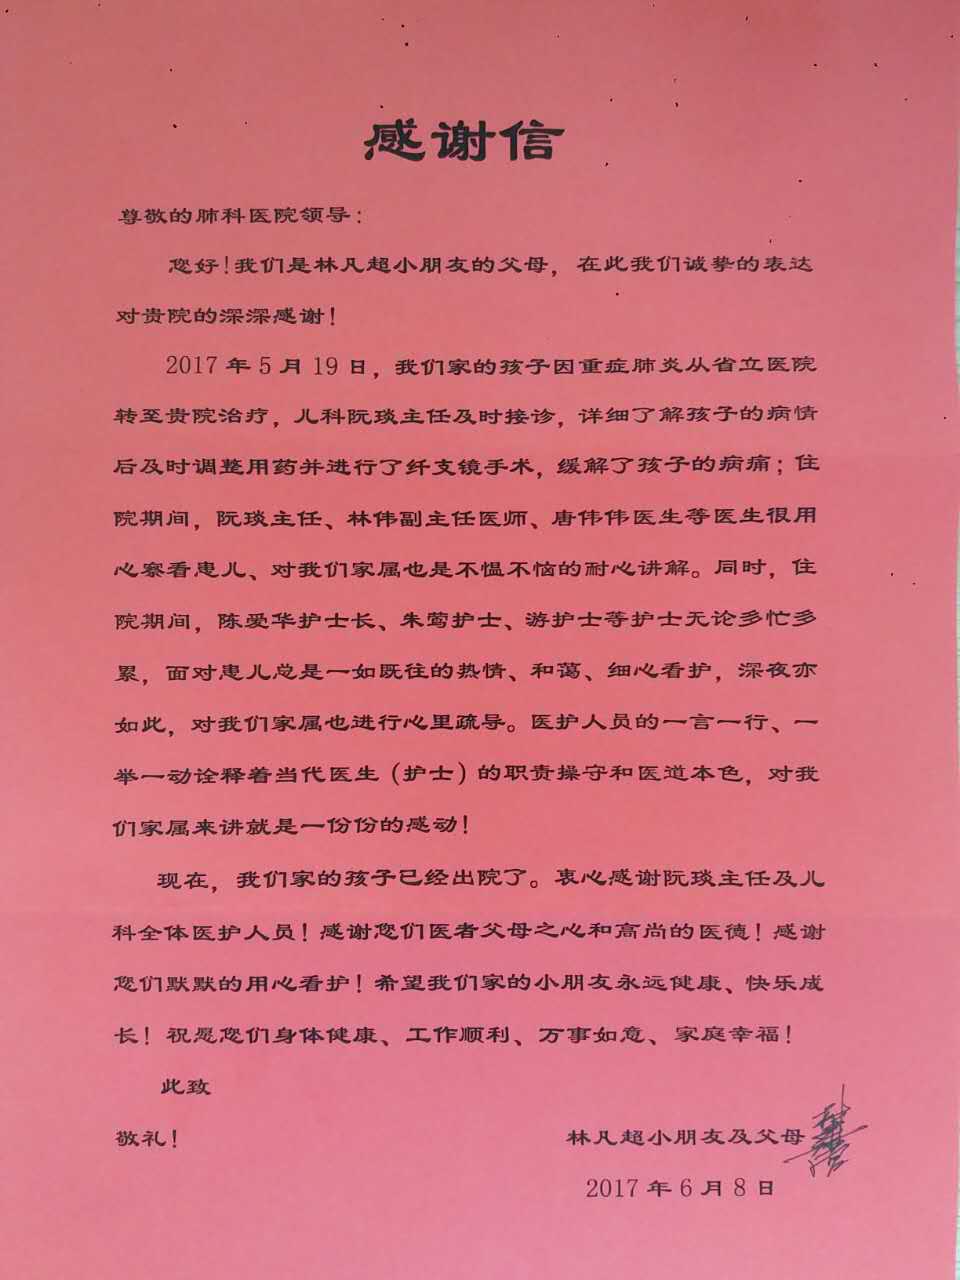 感谢信
尊敬的肺科医院领导：
您好！我们是林凡超小朋友的父母，在此我们诚挚的表达
对贵院的深深感谢！
2017年5月19日，我们家的孩子因重症肺炎从省立医院
转至贵院治疗，儿科阮琰主任及时接诊，详细了解孩子的病情
后及时调整用药并进行了纤支镜手术，缓解了孩子的病痛；住
院期间，阮琰主任、林伟副主任医师、唐伟伟医生等医生很用
心察看患儿、对我们家属也是不愠不恼的耐心讲解。同时，住
院期间，陈爱华护士长、朱莺护士、游护士等护士无论多忙多
累，面对患儿总是一如既往的热情、和蔼、细心看护，深夜亦
如此，对我们家属也进行心里疏导。医护人员的一言一行、一
举一动诠释着当代医生（护士）的职责操守和医道本色，对我
们家属来讲就是一份份的感动！
现在，我们家的孩子已经出院了。衷心感谢阮琰主任及儿
科全体医护人员！感谢您们医者父母之心和高尚的医德！感谢
您们默默的用心看护！希望我们家的小朋友永远健康、快乐成
长！祝愿您们身体健康、工作顺利、万事如意、家庭幸福！
此致
敬礼！
林凡超小朋友及父母
2017年6月8日